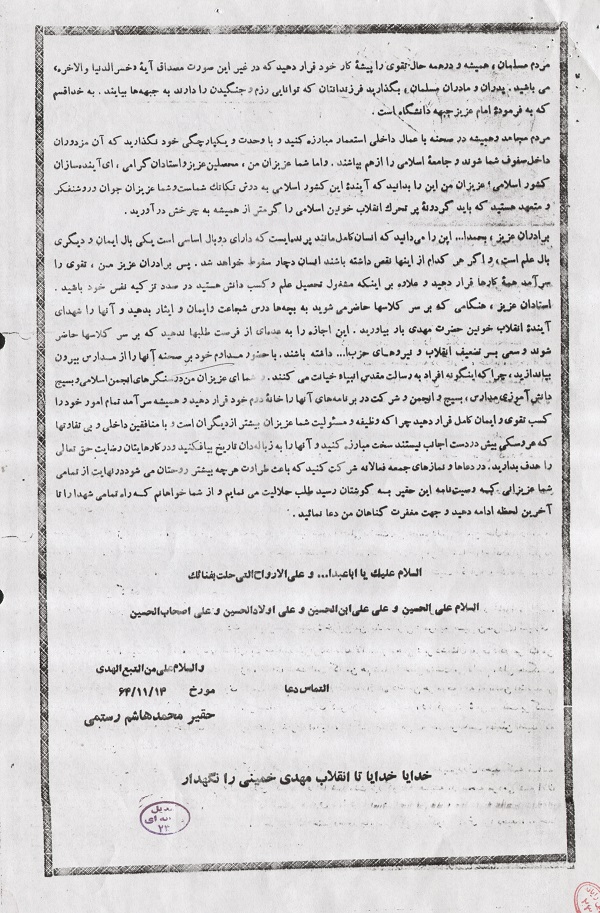 مردم مسلمان ، همیشه و در همه حال تقوی را پیشهٔ کار خود قرار دهید که در غیر این صورت مصداق آیهٔ «خسر الدنیا والاخره»
می باشید . پدران و مادران مسلمان ، بگذارید فرزندانتان که توانایی رزم و جنگیدن را دارند به جبهه‌ها بیایند . به خدا قسم
که به فرمودهٔ امام عزیز جبهه دانشگاه است .
مردم مجاهد و همیشه در صحنه با عمال داخلی استعمار مبارزه کنید و با وحدت و یکپارچگی خود نگذارید که آن مزدوران
داخل صفوف شما شوند و جامعهٔ اسلامی را از هم بپاشند . و اما شما عزیزان من ، محصلین عزیز و استادان گرامی ، ای آینده‌سازان
کشور اسلامی ؛ عزیزان من این را بدانید که آیندهٔ این کشور اسلامی به دوش تکاتک شماست و شما عزیزان جوان و روشنفکر
و متعهد هستید که باید گردونهٔ پر تحرك انقلاب خونین اسلامی را گرمتر از همیشه به چرخش در آورید .
برادران عزیز ، بحمدا... این را می‌دانید که انسان کامل مانند پرنده‌ایست که دارای دو بال اساسی است یکی بال ایمان و دیگری
بال علم است ، و اگر هر کدام از اینها نقص داشته باشند انسان دچار سقوط خواهد شد . پس برادران عزیز من ، تقوی را
سرآمد همهٔ کارها قرار دهید و علاوه بر اینکه مشغول تحصیل علم و کسب دانش هستید در صدد تزکیه نفس خود باشید .
استادان عزیز ، هنگامی که بر سر کلاسها حاضر می شوید به بچه‌ها درس شجاعت و ایمان و ایثار بدهید و آنها را شهدای
آیندهٔ انقلاب خونین حضرت مهدی بار بیاورید . این اجازه را به عده‌ای از فرصت طلبها ندهید که بر سر کلاسها حاضر
شوند و سعی بر تضعیف انقلاب و نیروهای حزب‌ا... داشته باشند . با حضور مداوم خود بر صحنه آنها را از مدارس بیرون
بیاندازید ، چرا که اینگونه افراد به رسالت مقدس انبیاء خیانت می کنند . و شما ای عزیزان من در سنگرهای انجمن اسلامی و بسیج
دانش آموزی مدارس ، بسیج و انجمن و شرکت در برنامه‌های آنها را خانهٔ دوم خود قرار دهید و همیشه سرآمد تمام امور خود را
کسب تقوی و ایمان کامل قرار دهید چرا که وظیفه و مسئولیت شما عزیزان بیشتر از دیگران است و با منافقین داخلی و بی تفاوتها
که عروسکی بیش در دست اجانب نیستند سخت مبارزه کنید و آنها را به زباله‌دان تاریخ بیافکنید و در کارهایتان رضایت حق تعالی
را هدف بدارید . در دعاها و نمازهای جمعه فعالانه شرکت کنید که باعث طراوت هر چه بیشتر روحتان می شود در نهایت از تمامی
شما عزیزانی که وصیت‌نامه این حقیر به گوشتان رسید طلب حلالیت می نمایم و از شما خواهانم که راه تمامی شهدا را تا
آخرین لحظه ادامه دهید و جهت مغفرت گناهان من دعا نمائید .
السلام علیك یا اباعبدا... و علی الارواح التی حلت بفنائك
السلام علی الحسین و علی علی ابن الحسین و علی اولاد الحسین و علی اصحاب الحسین
والسلام علی من التبع الهدی
التماس دعا مورخ ۶۴/۱۱/۱۴
حقیر محمدهاشم رستمی
خدایا خدایا تا انقلاب مهدی خمینی را نگهدار